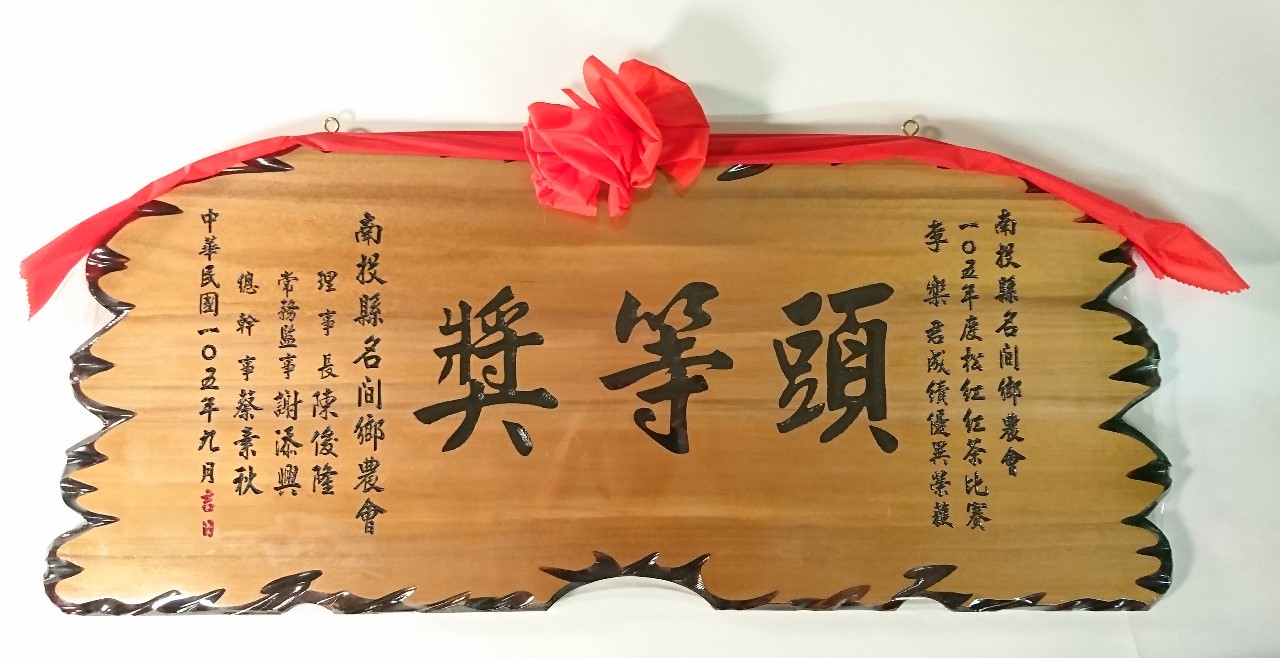 南投縣名間鄉農會
一〇五年度松紅紅茶比賽
李樂君成績優異榮獲
頭等獎
南投縣名間鄉農會
理事長陳俊隆
常務監事謝添興
總幹事蔡秉秋
中華民國一〇五年九月吉日